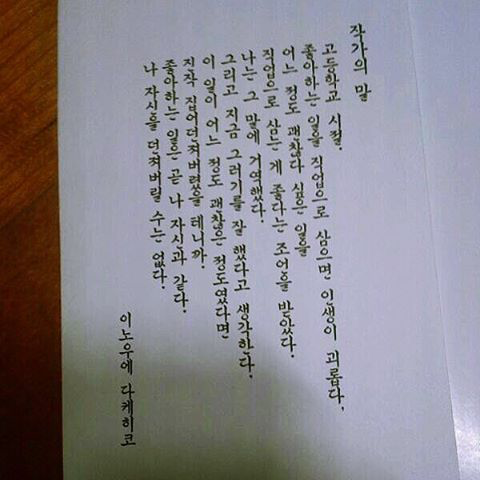 작가의 말
고등학교 시절.
좋아하는 일을 직업으로 삼으면 인생이 괴롭다,
어느 정도 괜찮다 싶은 일을
직업으로 삼는 게 좋다는 조언을 받았다.
나는 그 말에 거역했다.
그리고 지금 그러기를 잘 했다고 생각한다.
이 일이 어느 정도 괜찮은 정도였다면
진작 집어던져버렸을 테니까.
좋아하는 일은 곧 나 자신과 같다.
나 자신을 던져버릴 수는 없다.
이노우에 다케히코